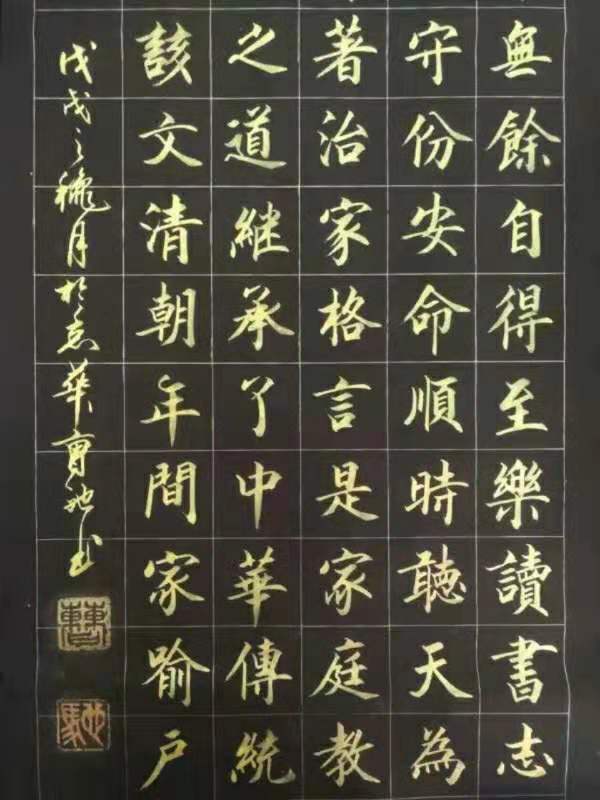 無餘自得至樂讀書志
守份安命順時聽天為
著治家格言是家庭教
之道繼承了中華傳統
該文清朝年間家喻戶
戊戌之穐月於京華曹馳书
曹
馳